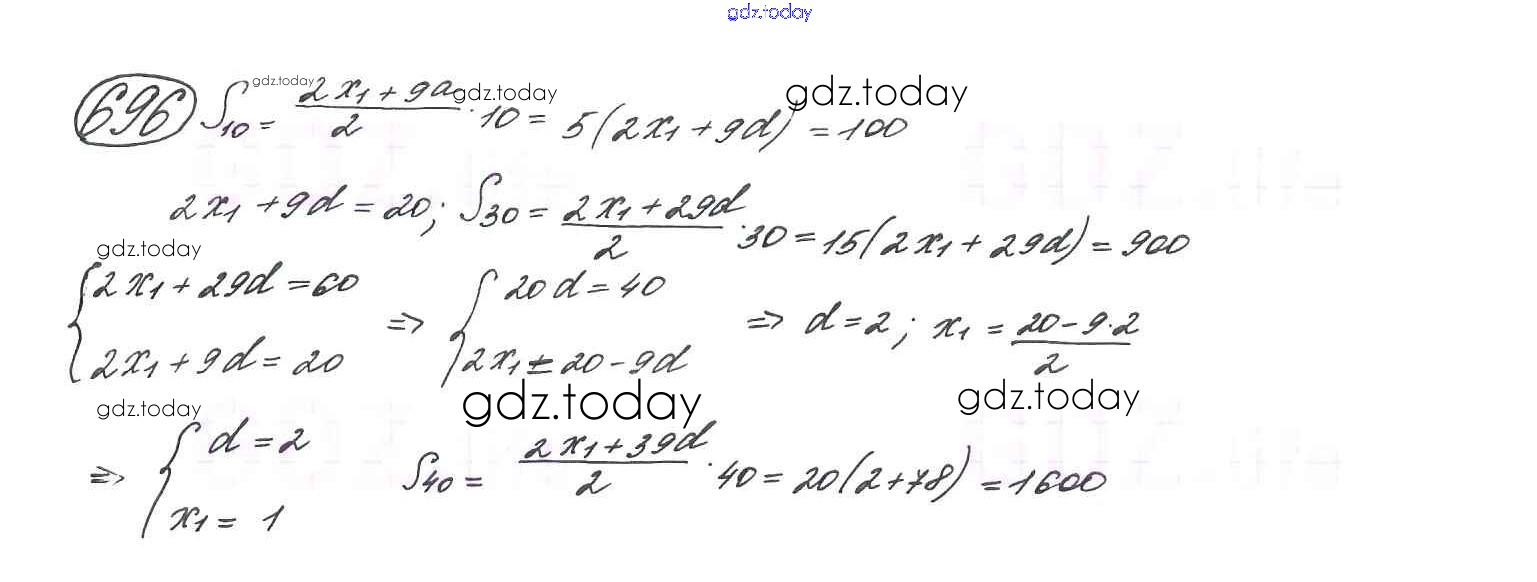 gdz.today
696 S₁₀ = (2x₁ + 9d)/2 · 10 = 5(2x₁ + 9d) = 100
gdz.today gdz.today gdz.today
2x₁ + 9d = 20; S₃₀ = (2x₁ + 29d)/2 · 30 = 15(2x₁ + 29d) = 900
gdz.today
{ 2x₁ + 29d = 60 ⇒ { 20d = 40 ⇒ d = 2; x₁ = (20 - 9·2)/2
2x₁ + 9d = 20 2x₁ = 20 - 9d
gdz.today gdz.today gdz.today
⇒ { d = 2 S₄₀ = (2x₁ + 39d)/2 · 40 = 20(2 + 78) = 1600
x₁ = 1